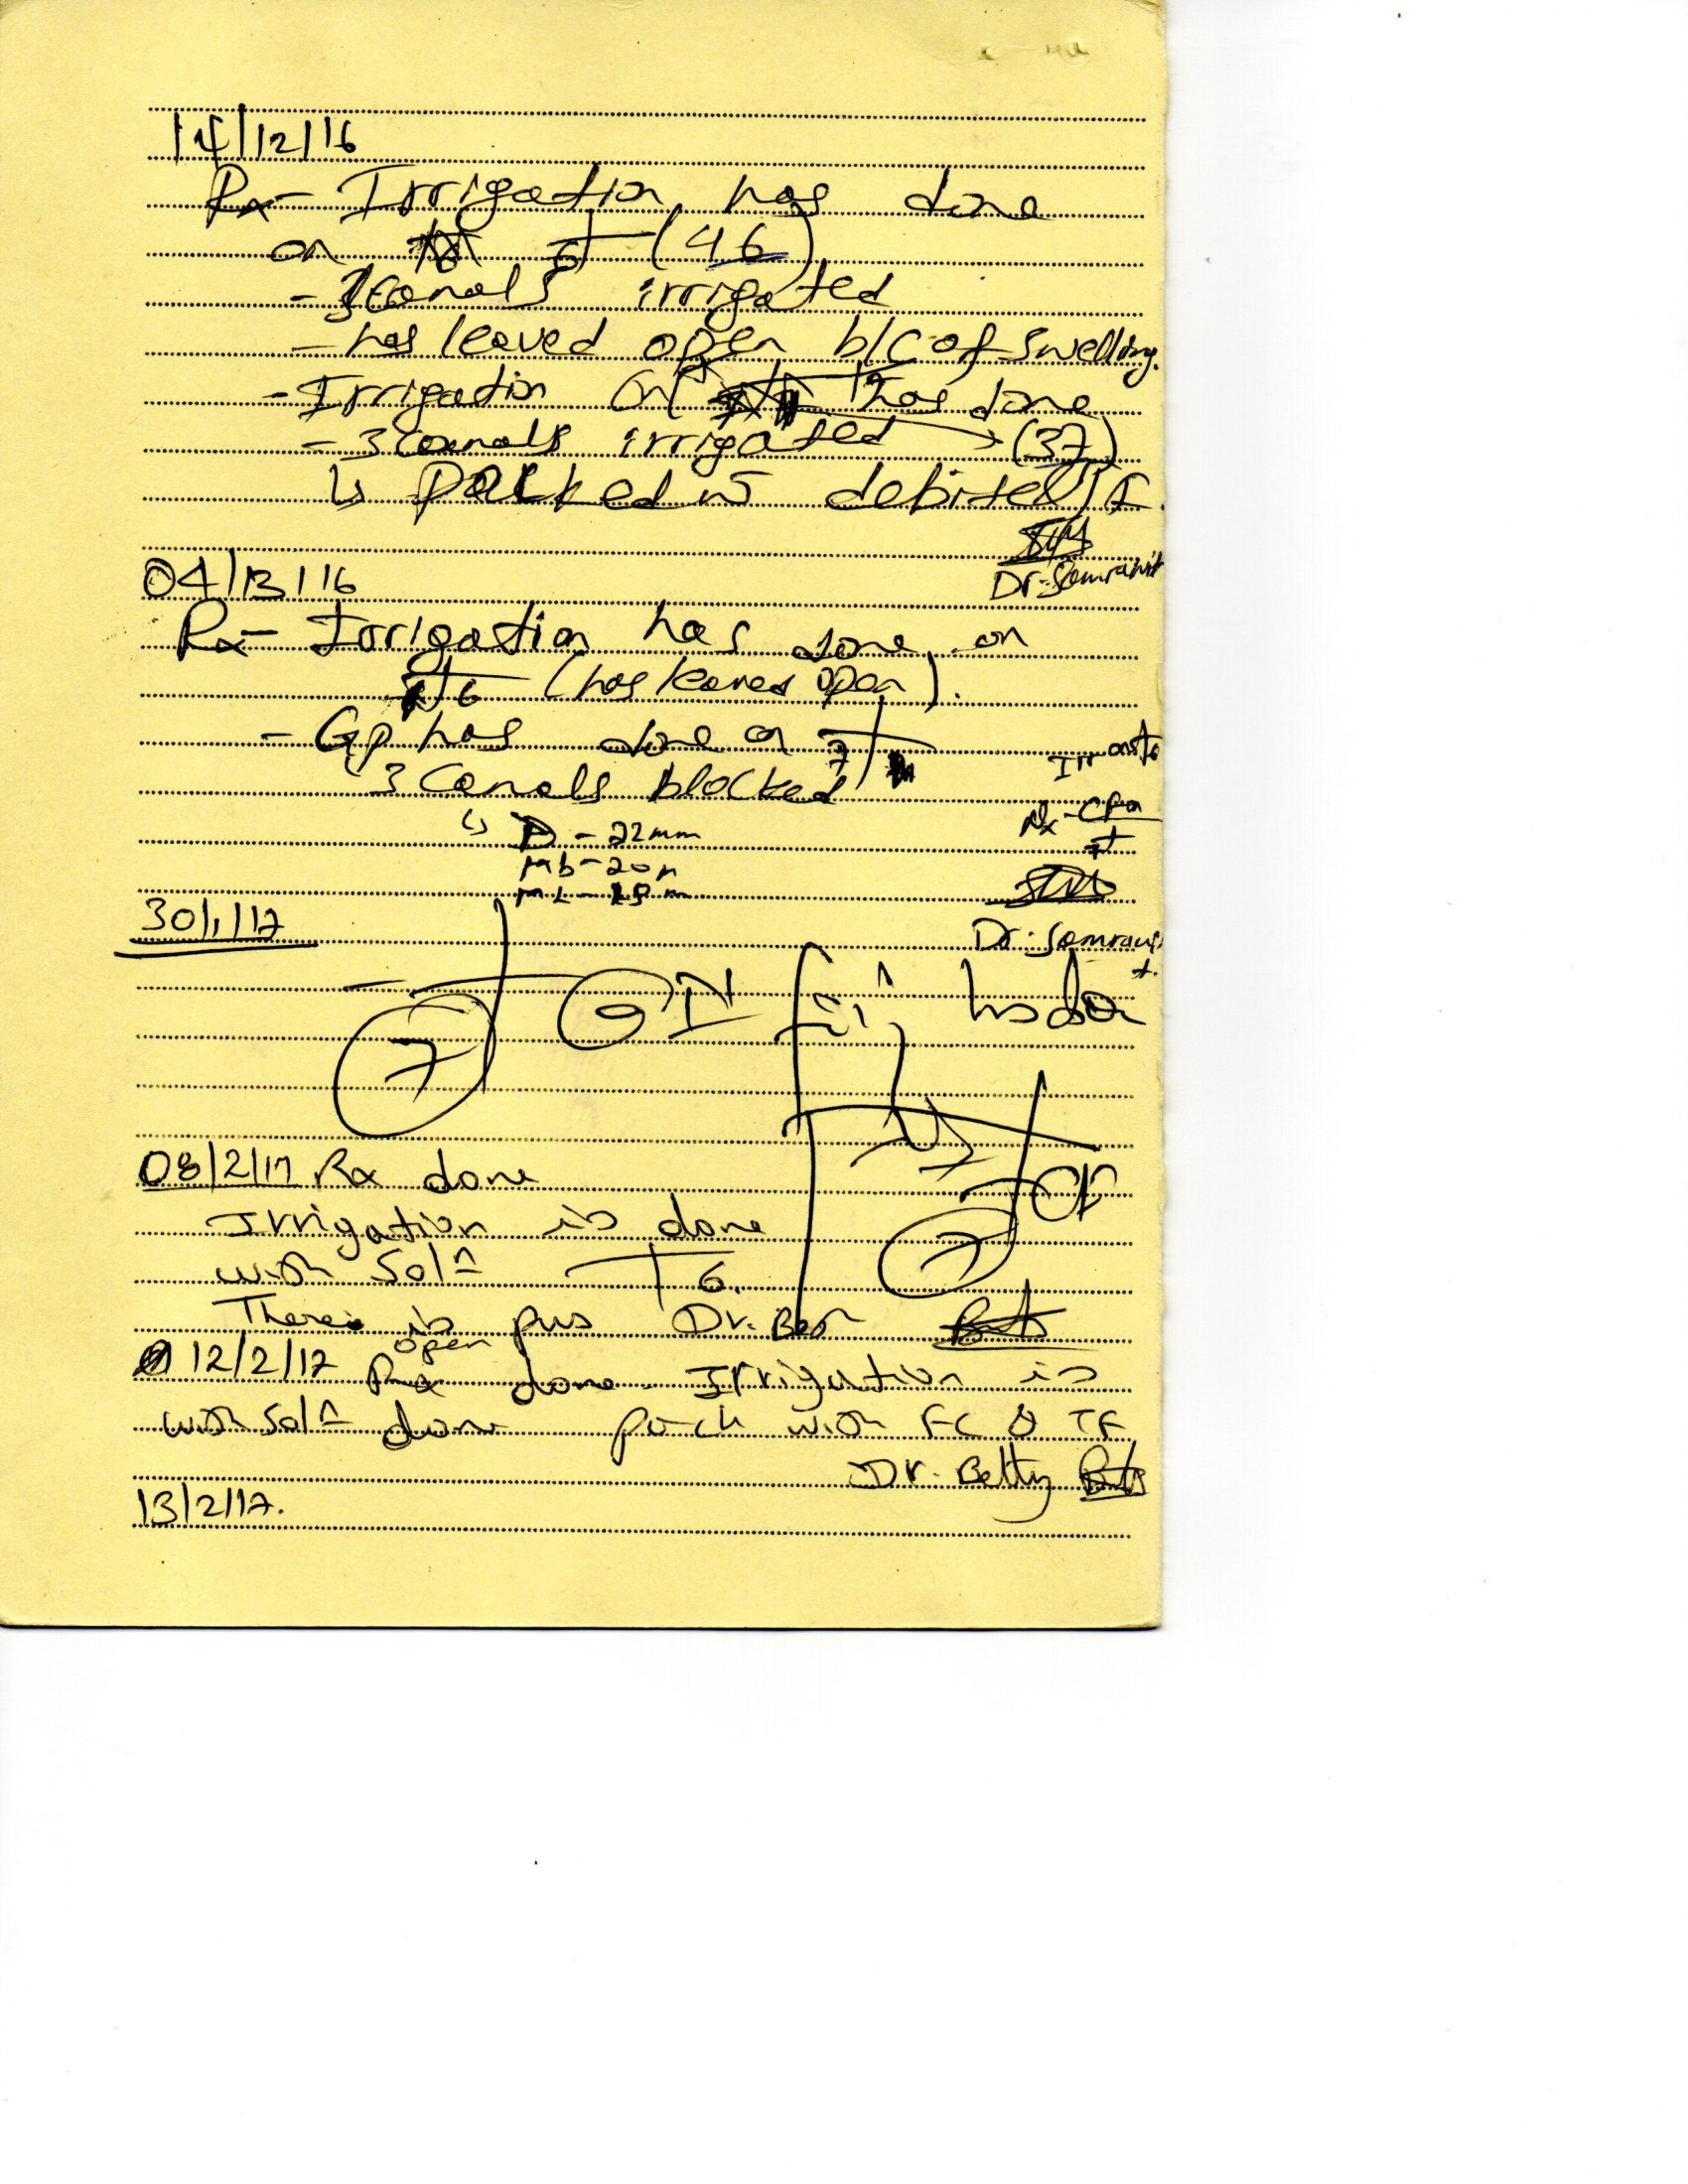 14/12/16
Rx- Irrigation has done
on 6 (46)
- 3 canals irrigated
- has leaved open b/c of swelling.
- Irrigation on has done
- 3 canals irrigated → (37)
↳ packed w debitel / F.
Dr. Samrawit
04/13/16
Rx- Irrigation has done on
6 (has leaved open).
- Gp has done on 7
3 canals blocked
↳ D - 22mm
Mb - 20
ML - 18 m
Dr. Samrawit
30/1/17
7
7
08/2/17 Rx done
Irrigation is done
with Soln 6.
There is pus Dr. Bet
open
12/2/17 Rx done Irrigation is
with Soln done pack with FC & TF
Dr. Betty
13/2/17.